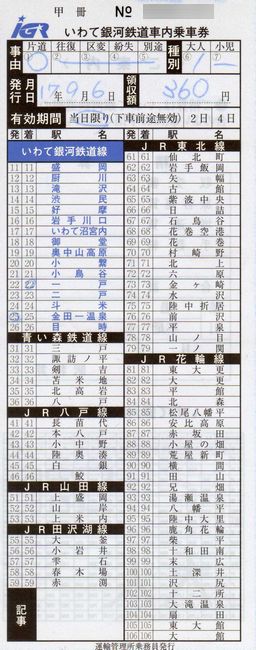 甲 冊 №
IGR いわて銀河鉄道車内乗車券
事由 片道 往復 区変 紛失 別途 種別 大人 小児
0 1
発行 月日 17年9月6日 領収額 360円
有効期間 当日限り(下車前途無効) 2日 4日
発 着 駅名
いわて銀河鉄道線
11 11 盛岡
12 12 厨川
13 13 滝沢
14 14 渋民
15 15 好摩
16 16 岩手川口
17 17 いわて沼宮内
18 18 御堂
19 19 奥中山高原
20 20 小繋
21 21 小鳥谷
22 22 一戸
23 23 二戸
24 24 斗米
25 25 金田一温泉
26 26 目時
青い森鉄道線
31 31 三戸
32 32 諏訪ノ平
33 33 剣吉
34 34 苫米地
35 35 北高岩
36 36 八戸
JR八戸線
41 41 長苗代
42 42 本八戸
43 43 小中野
44 44 陸奥湊
45 45 白銀
鮫
JR山田線
51 51 上盛岡
52 52 山岸
53 53 上米内
JR田沢湖線
55 55 大釜
56 56 小岩井
57 57 雫石
58 58 春木場
59 59 赤渕
記事
発 着 駅名
JR東北線
61 61 仙北町
62 62 岩手飯岡
63 63 矢幅
64 64 古館
65 65 紫波中央
66 66 日詰
67 67 石鳥谷
68 68 花巻空港
69 69 花巻
70 70 村崎野
71 71 北上
72 72 六原
73 73 金ヶ崎
74 74 水沢
75 75 陸中折居
76 76 前沢
77 77 平泉
78 78 山ノ目
79 79 一ノ関
JR花輪線
81 81 東大更
82 82 大更
83 83 平館
84 84 北森
85 85 松尾八幡平
86 86 安比高原
87 87 赤坂田
88 88 小屋の畑
89 89 荒屋新町
90 90 横間
91 91 田山
92 92 兄畑
93 93 湯瀬温泉
94 94 八幡平
95 95 陸中大里
96 96 鹿角花輪
97 97 柴平
98 98 十和田南
99 99 末広
100 100 土深井
101 101 沢尻
102 102 十二所
103 103 大滝温泉
104 104 扇田
105 105 東大館
106 106 大館
運輸管理所乗務員発行